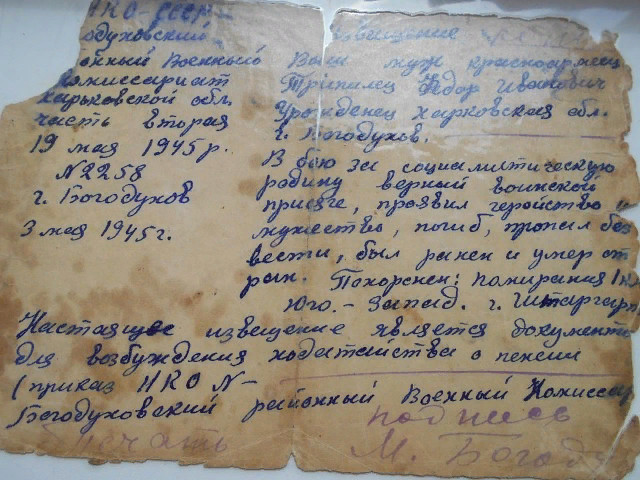 НКО-СССР-
одуховский
нный Военный
омиссариат
харьковской обл.
часть вторая
19 мая 1945 р.
N 2258
г. Богодухов
3 мая 1945 г.
звещение
Ваш муж красноармеец
Тріпалец Федор Иванович
Урожденец харковская обл.
г. Богодухов.
В бою за социалистическую
родину верный воинской
присяге, проявил геройство и
мужество, погиб, пропал без
вести, был ранен и умер от
ран. Похорснен: Померания 1 км
Юго.-Запад. г. Штаргарт
Настоящее извещение является документо
для возбуждения ходатайства о пенсии
(приказ НКО N-
Богодуховский районный Военный Комиссар
подпись
Печать М. Богоду